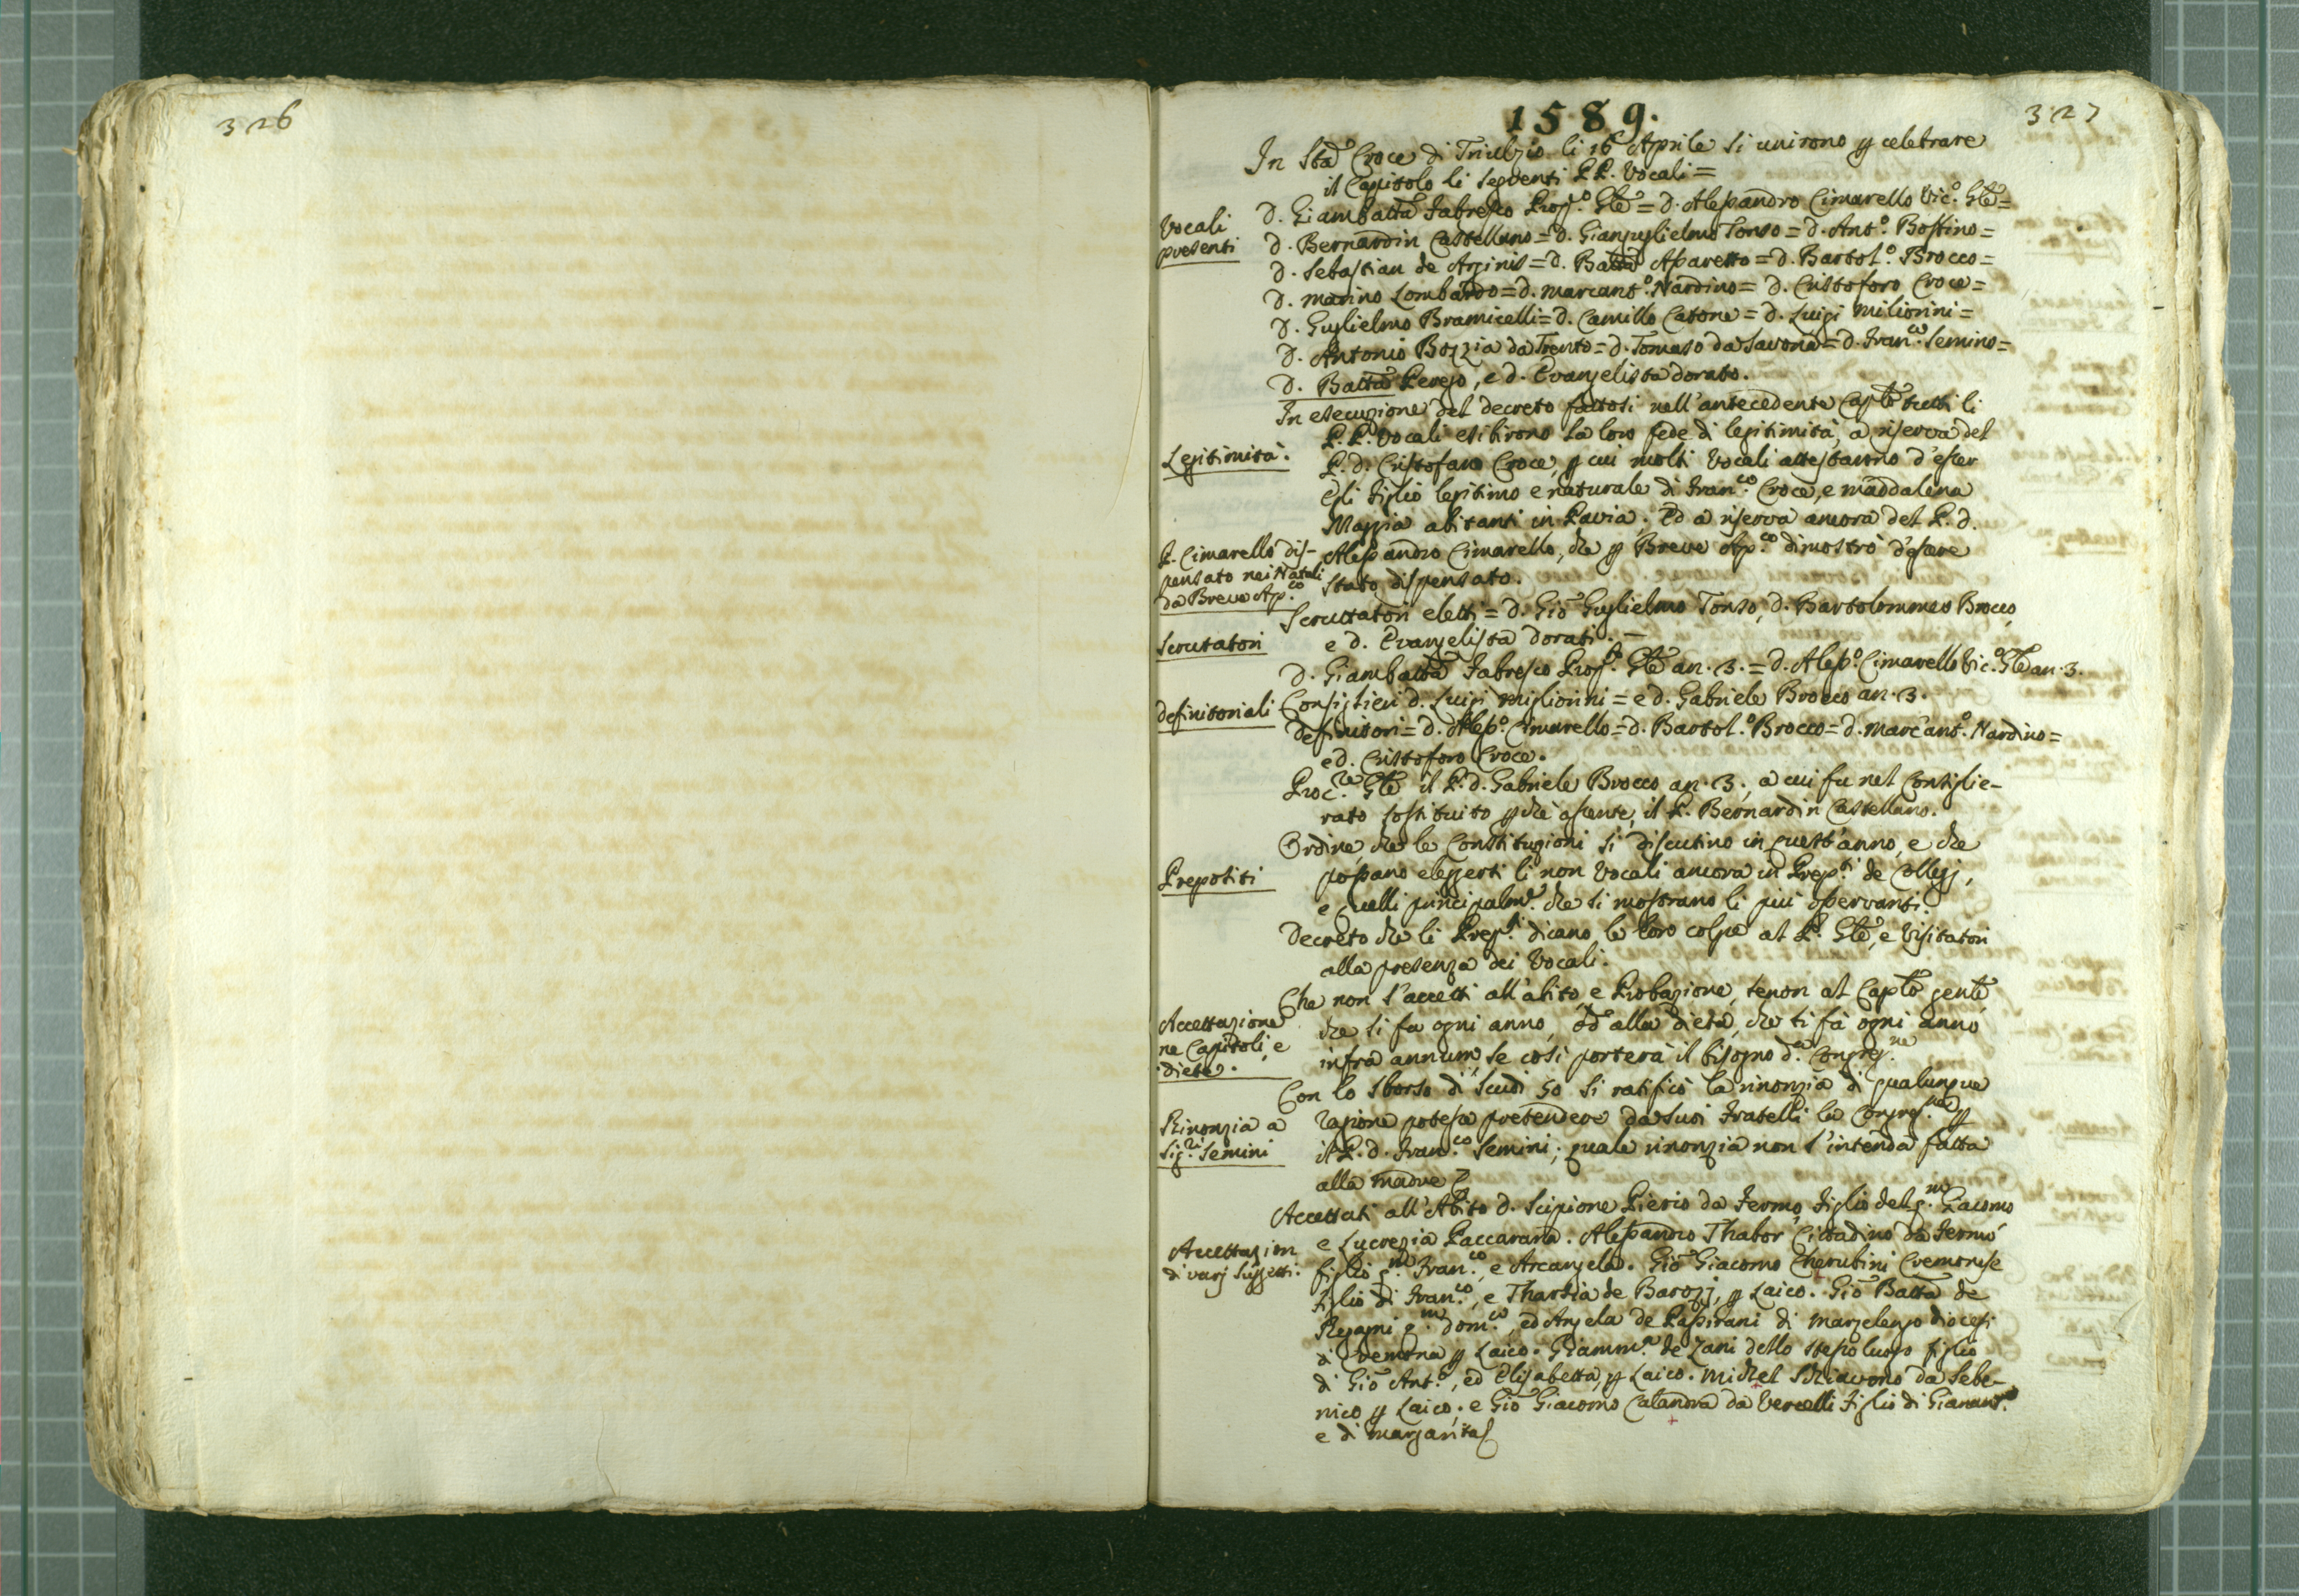 326
327
1589.
In Sta Croce di Triulzio li 16 Aprile si unirono p celebrare
il Capitolo li seguenti PP. Vocali =
Vocali
presenti
D. Giambatta Fabresco Prop.o Gle = D. Alessandro Cimarello Vic.o Gle =
D. Bernardin Castellano = D. Gianguglielmo Tonso = D. Ant.o Bossino =
D. Sebastian de Arginis = D. Batta Aparetto = D. Bartol.o Brocco =
D. Marino Lombardo = D. Marcant.o Nardino = D. Cristoforo Croce =
D. Guglielmo Bramicelli = D. Camillo Catone = D. Luigi Miliorini =
D. Antonio Bozzia da Trento = D. Tomaso da Savona = D. Fran.co Semino =
D. Batta Perego, e d. Evangelista Dorato.
In esecuzione del decreto fattosi nell'antecedente Caplo tutti li
P.P. Vocali esibirono la loro fede di legitimità, a riserva del
Legitimità.
P. D. Cristofaro Croce, p cui molti Vocali attestarono d'esser
egli figlio legitimo e naturale di Fran.co Croce, e Maddalena
Maggia abitanti in Pavia. Ed a riserva ancora del P. D.
P. Cimarello dis-
pensato nei Natali
da Breve Ap.co
Alessandro Cimarello, che p Breve Ap.co dimostrò d'essere
stato dispensato.
Scrutatori eletti = D. Gio Guglielmo Tonso, D. Bartolommeo Brocco,
Scrutatori
e D. Evangelista Dorati. —
D. Giambatta Fabresco Prop.to Gle an. 3. = D. Aless.o Cimarello Vic.o Gle an. 3.
Definitoriali
Consiglieri D. Luigi Migliorini = e D. Gabriele Brocco an. 3.
Definitori = D. Aless.o Cimarello = D. Bartol.o Brocco = D. Marcant.o Nardino =
e D. Cristoforo Croce.
Proc.re Gle il P. D. Gabriele Brocco an. 3., a cui fu nel Consiglie-
rato sostituito p che assente, il P. Bernardin Castellano.
Ordine, che le Constituzioni si discutino in quest'anno, e che
Prepositi
possano eleggersi li non Vocali ancora in Prep.ti de Collegj,
e quelli principalm.e che si mostrano li più osservanti.
Decreto che li Prep.ti dicano le loro colpe al P. Gle, e Visitatori
alla presenza dei Vocali.
Che non s'accetti all'abito, e Probazione, se non al Caplo gente
Accettazione
ne Capitoli, e
diete.
che si fa ogni anno, od alla dieta, che si fà ogni anno
infra annum, se così porterà il bisogno d.a Congreg.ne
Con lo sborso di scudi 50 si ratificò la rinonzia di qualunque
Rinonzia a
Sig.ri Semini
ragione potesse pretendere da suoi Fratelli la Congreg.ne p
il P. D. Fran.co Semini; quale rinonzia non s'intenda fatta
alla madre
Accettati all'Abito D. Scipione Pierio da Fermo, figlio del q.m Giacomo
Accettazion
di varj suggetti.
e Lucrezia Paccarana. Alessandro Thabor Cittadino da Fermo
figlio q.m Fran.co, e Arcangela. Gio Giacomo Cherubini Cremonese
figlio di Fran.co, e Tharsia de Barozj, p Laico. Gio Batta de
Regagni q.m Dom.co, ed Angela de Passirani di Marzelengo diocesi
di Cremona p Laico. Giamm.a de Zani dello stesso luogo figlio
di Gio Ant.o, ed Elisabetta, p Laico. Michel Schiavono da Sebe-
nico p Laico; e Gio Giacomo Calandra da Vercelli figlio di Gianant.o
e di Margarita